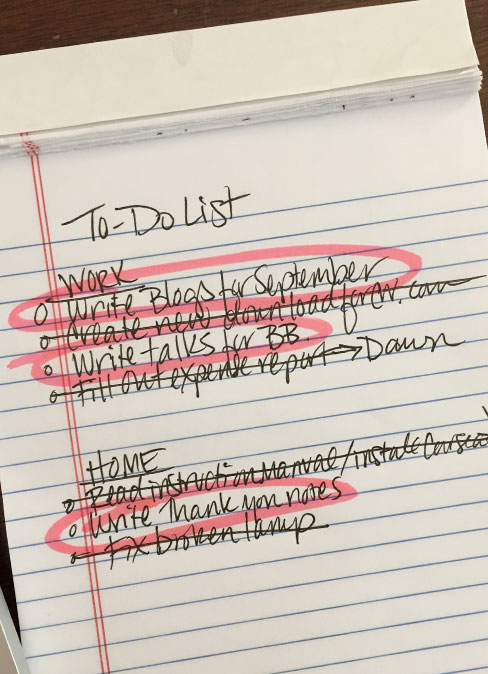 To-Do List
WORK
Write Blogs for September
Create new download for cw.com
Write talks for BB.
Fill out expense report → Dawn
HOME
Read instruction manual/install
Write Thank you notes
Fix broken lamp